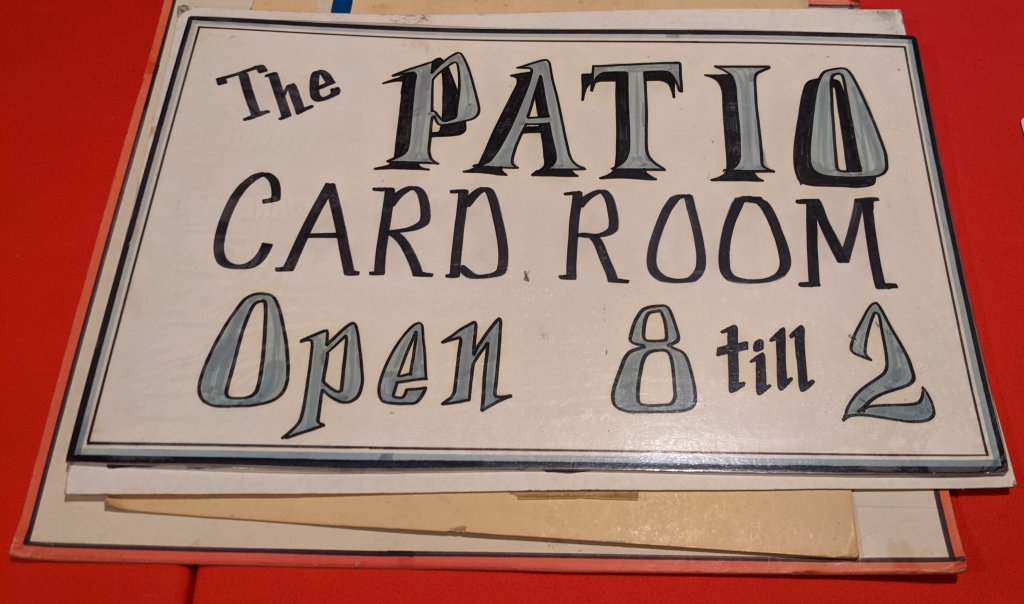 The PATIO
CARD ROOM
Open 8 till 2